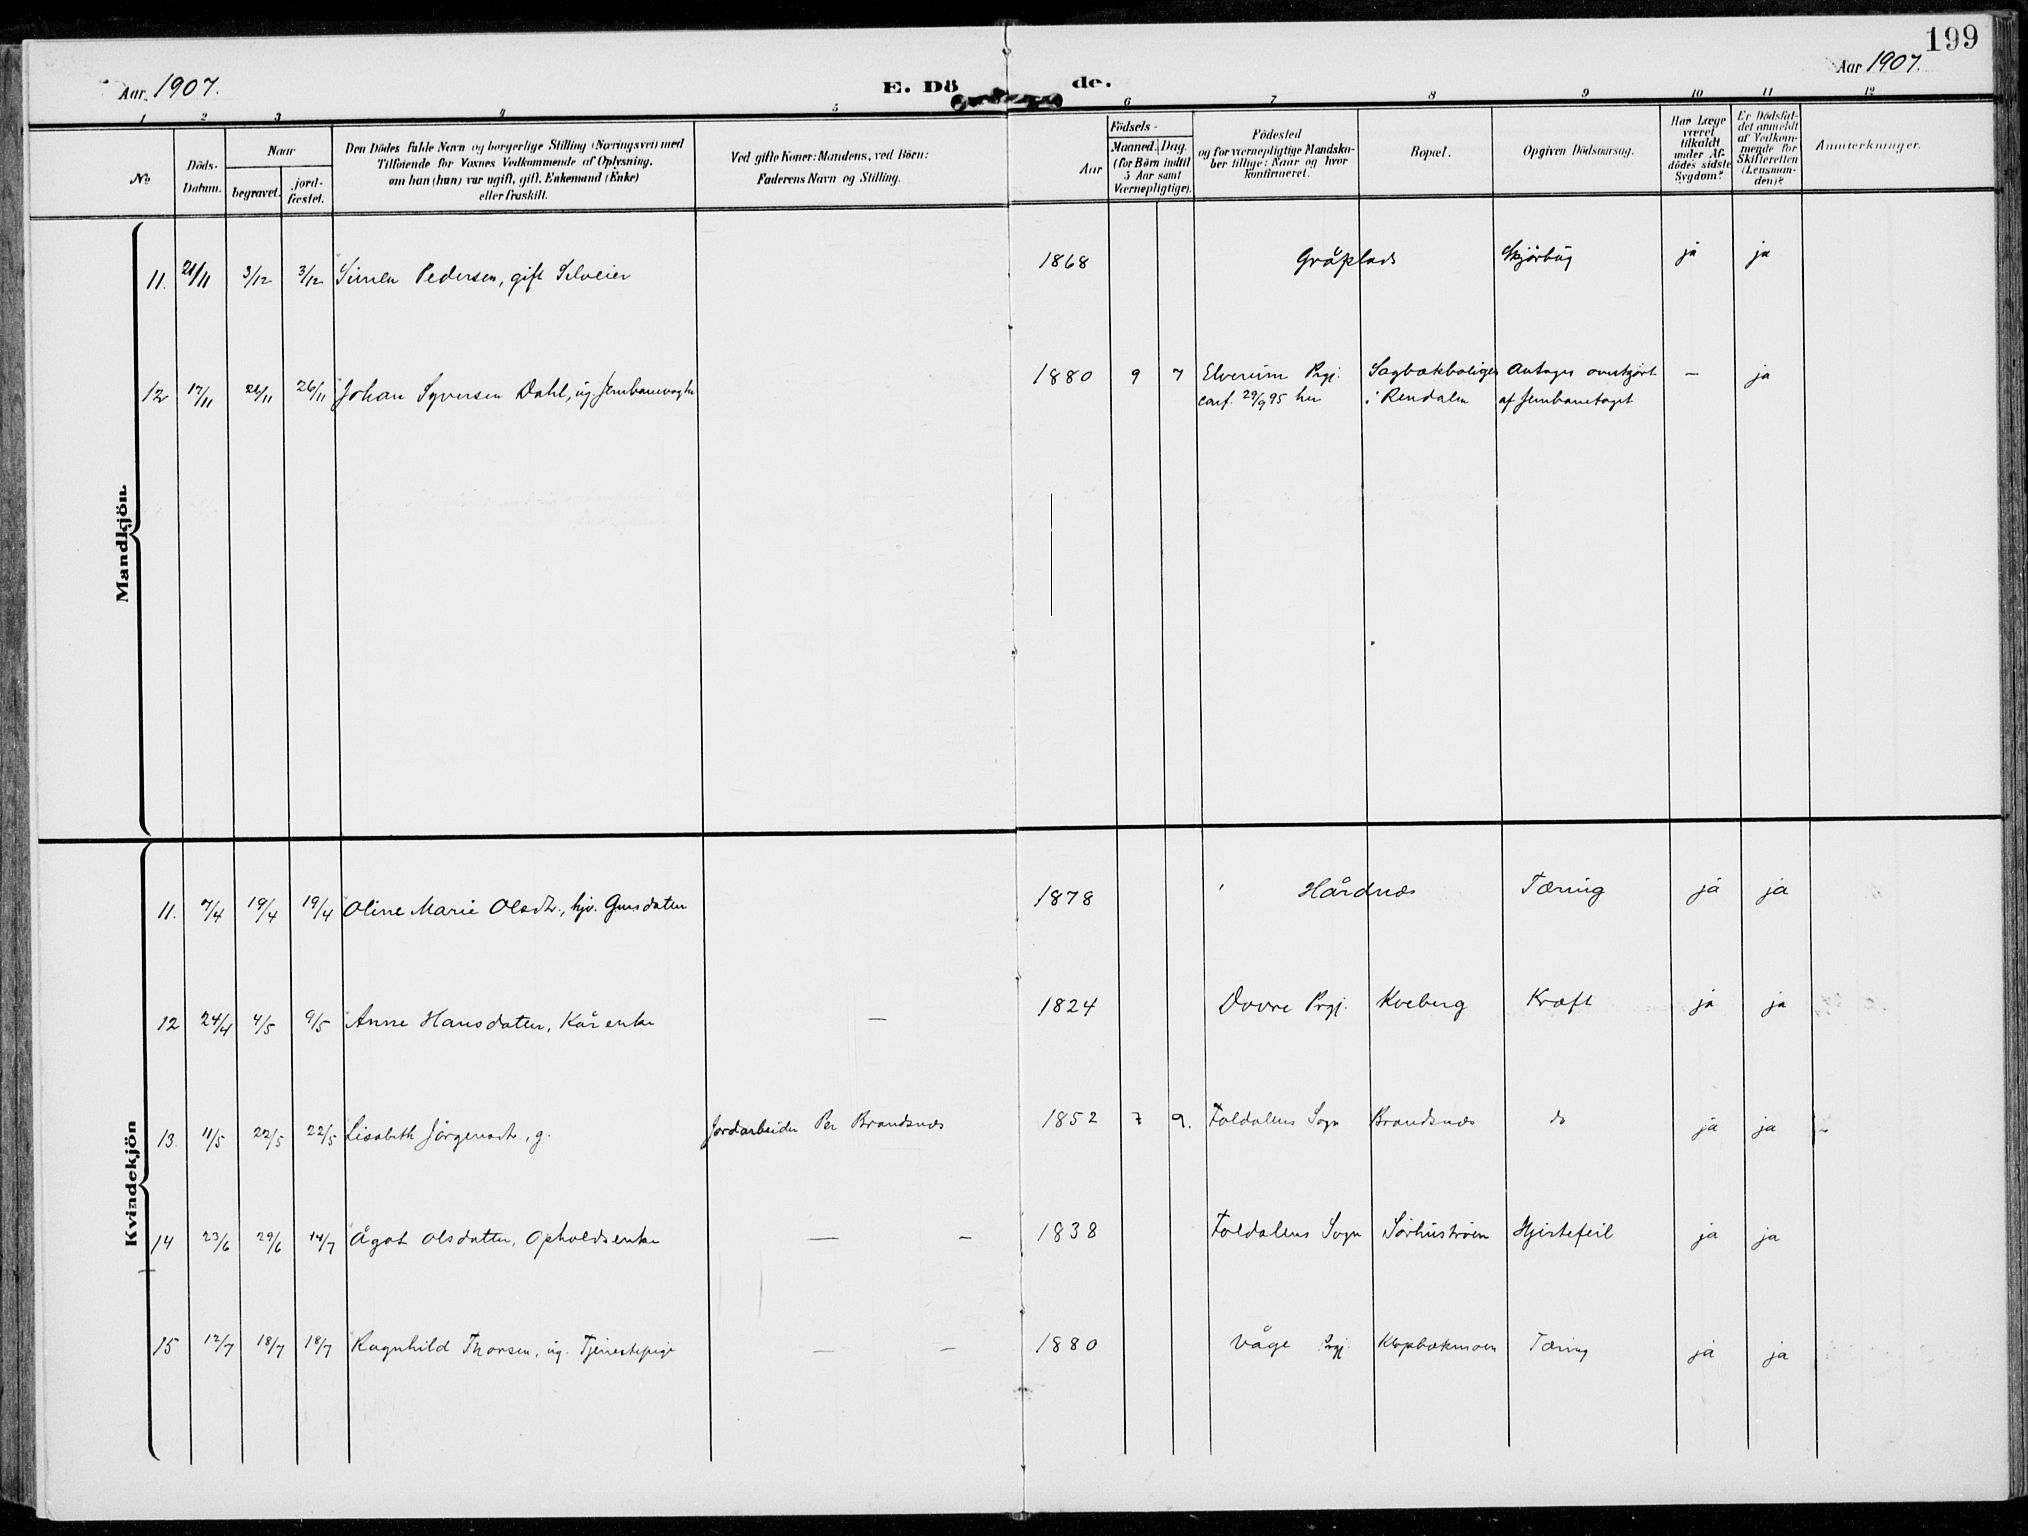 199
Aar 1907.
E. Döde.
Aar 1907.
1 2 3 4 5 6 7 8 9 10 11 12
No
Döds-Datum.
Naar
begravet.
jordfæstet.
Den Dödes fulde Navn og borgerlige Stilling (Næringsvei) med
Tilföiende for Voxnes Vedkommende af Oplysning,
om han (hun) var ugift, gift, Enkemand (Enke)
eller fraskilt.
Ved gifte Koner: Mandens, ved Börn:
Faderens Navn og Stilling.
Födsels-
Aar
Maaned. Dag.
(for Börn indtil
5 Aar samt
Værnepligtige).
Födested
og for værnepligtige Mandskaber tillige: Naar og hvor
konfirmeret.
Bopæl.
Opgiven Dödsaarsag.
Har Læge
været
tilkaldt
under Afdödes sidste
Sygdom?
Er Dödsfaldet anmeldt
af Vedkommende for
Skifteretten
(Lensmanden)?
Anmerkninger.
Mandkjön.
11. 21/11 3/12 3/12 Simen Pedersen, gift Selveier 1868 Gråplads ja ja
12 17/11 26/11 26/11 Johan Syversen Dahl, ug. Jernbanevogter 1880 9 7 Elverum Prgj. Sagbækboligen Antages overkjört — ja
conf. 29/9 95 her i Rendalen af Jernbanetoget
Kvindekjön
11. 7/4 19/4 19/4 Oline Marie Olsdtr., 1878 Hårdnæs Tæring ja ja
12 24/4 4/5 9/5 Anne Hansdatter, Kårenke — 1824 Dovre Prgj. Kveberg Kræft ja ja
13. 11/5 22/5 22/5 Lisabeth Jörgensdtr., g. Jordarbeider Per Brandsnæs 1852 7 9. Foldalens Sogn Brandsnæs do ja ja
14 23/6 29/6 14/7 Ågot Olsdatter, Opholdsenke — — 1838 Foldalens Sogn Hjertefeil ja ja
15 12/7 18/7 18/7 Ragnhild Thorsen, ug. Tjenestepige — — 1880 Våge Prgj. Tæring ja ja